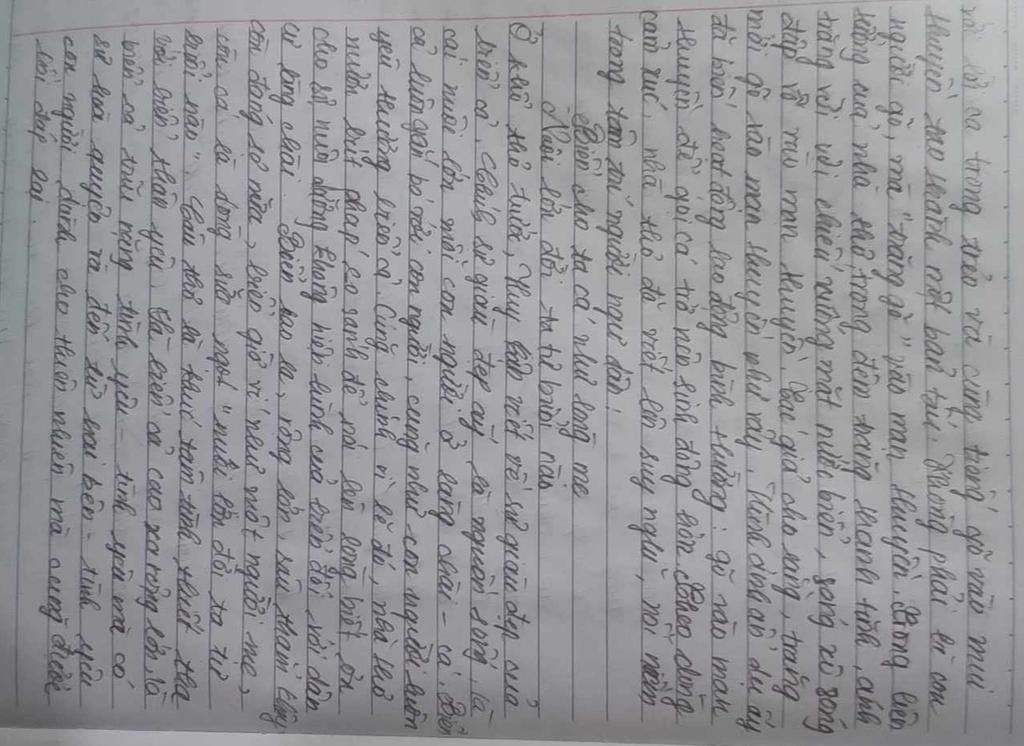 lời ca trong trẻo và cùng tiếng gõ vào mui
thuyền tạo thành một bản
người gõ, mà "trăng gõ" vào mạn thuyền. Bóng liên
tưởng của nhà thơ, trong đêm trăng thanh tĩnh, ánh
trăng với vời chiếu xuống mặt nước biển, sóng xô sóng
đập vỗ vào mạn thuyền. Tác giả cho rằng, trăng
mới gõ vào mạn thuyền như vậy. Hình ảnh ẩn dụ ấy
đã biến hoạt động lao động bình thường: gõ vào mạn
thuyền để gọi cá trở nên sinh động hơn. Theo dòng
cảm xúc, nhà thơ đã viết lên suy nghĩ, nỗi niềm
trong tâm tư người ngư dân:
Biển cho ta cá như lòng mẹ
Nuôi lớn đời ta tự buổi nào
Ở khổ thơ trước, Huy Cận viết về sự giàu đẹp của
biển cả. Chính sự giàu đẹp ấy là nguồn sống, là
cái nuôi lớn mỗi con người ở làng chài - cá. Biển
cả luôn gắn bó với con người, cũng như con người luôn
yêu thương biển cả. Cũng chính vì lẽ đó, nhà thơ
mượn biện pháp so sánh để nói lên lòng biết ơn
cho sự nuôi dưỡng không hiện hình của biển đối với dân
cư làng chài. Biển bao la, rộng lớn sâu thẳm
còn đáng sợ nữa, biển giờ ví như một người mẹ,
tôm cá là dòng sữa ngọt "nuôi lớn đời ta tự
buổi nào". Câu thơ là khúc tâm tình thiết tha
với biển thân yêu. Và biển cả cao xa rộng lớn là
biển cả trĩu nặng tình yêu - tình yêu mà có
sự hòa quyện ra đến từ hai bên - tình yêu
con người dành cho thiên nhiên mà cũng được
lời đáp lại.